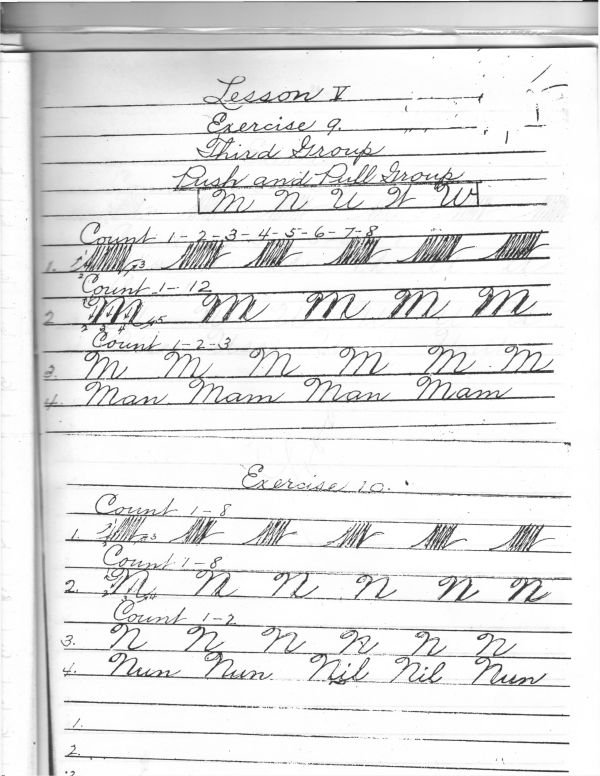 Lesson V
Exercise 9.
Third Group
Push and Pull Group
M N U V W
Count 1-2-3-4-5-6-7-8
1.
Count 1-12
2 M M M M M
Count 1-2-3
3. M M M M M M
4. Man Mam Man Mam
Exercise 10.
Count 1-8
1.
Count 1-8
2. N N N N N N
Count 1-2
3. N N N N N N
4. Nun Nun Nil Nil Nun
1.
2.